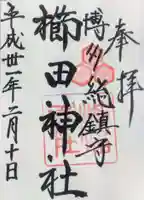 奉拝
博多総鎮守
櫛田神社
平成卅一年二月十日